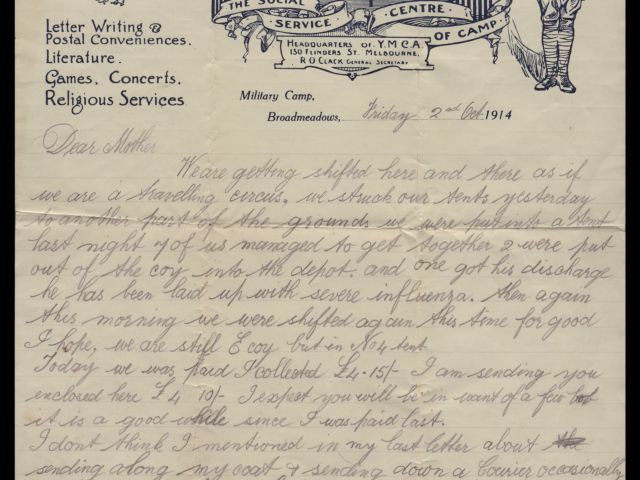 THE SOCIAL
SERVICE
CENTRE
OF CAMP
Letter Writing &
Postal Conveniences.
Literature.
Games, Concerts,
Religious Services
HEADQUARTERS OF Y.M.C.A.
130 FLINDERS ST. MELBOURNE.
R O CLACK GENERAL SECRETARY
Military Camp,
Broadmeadows, Friday 2nd Oct 1914
Dear Mother
We are getting shifted here and there as if
we are a travelling circus, we struck our tents yesterday
to another part of the grounds we were put into a tent
last night 7 of us managed to get together 2 were put
out of the coy into the depot. and one got his discharge
he has been laid up with severe influenza. then again
this morning we were shifted again this time for good
I hope, we are still E coy but in No 4 tent
Today we was paid I collected £4.15/- I am sending you
enclosed here £4 10/- I expect you will be in want of a few bob
it is a good while since I was paid last.
I dont think I mentioned in my last letter about the
sending along my coat & sending down a Courier occasionally